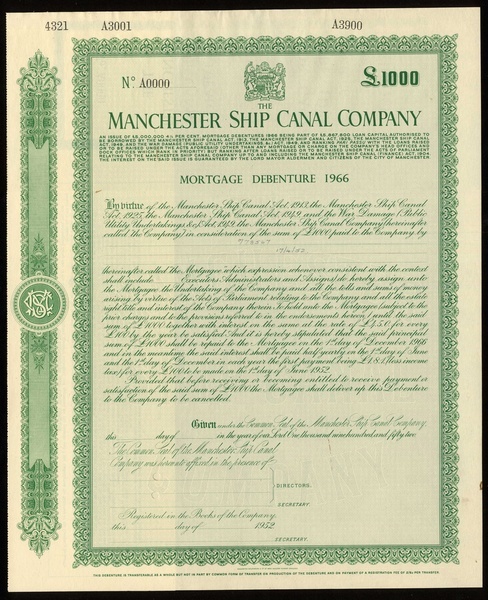 4321 A3001 A3900
No. A0000 £1000
THE
MANCHESTER SHIP CANAL COMPANY
AN ISSUE OF £6,000,000 4½ PER CENT. MORTGAGE DEBENTURES 1966 BEING PART OF LOAN CAPITAL AUTHORISED TO
BE BORROWED BY THE MANCHESTER SHIP CANAL ACT, 1913, THE MANCHESTER SHIP CANAL ACT, 1925, THE MANCHESTER SHIP CANAL
ACT, 1949, AND THE WAR DAMAGE (PUBLIC UTILITY UNDERTAKINGS, &c.) ACT, 1949, AND RANKING PARI PASSU WITH THE LOANS RAISED
OR TO BE RAISED UNDER THE ACTS AFORESAID OTHER THAN ANY MORTGAGE OR CHARGE ON THE COMPANY'S HEAD OFFICES AND
DOCK OFFICES WHICH RANK IN PRIORITY TO AND RANKING AFTER LOANS RAISED OR TO BE RAISED UNDER THE ACTS OF PARLIAMENT
RELATING TO THE MANCHESTER SHIP CANAL COMPANY UP TO AND INCLUDING THE MANCHESTER SHIP CANAL (FINANCE) ACT, 1904.
THE INTEREST ON THE SAID ISSUE IS GUARANTEED BY THE LORD MAYOR ALDERMEN AND CITIZENS OF THE CITY OF MANCHESTER
MORTGAGE DEBENTURE 1966
By virtue of the Manchester Ship Canal Act, 1913, the Manchester Ship Canal
Act, 1925, the Manchester Ship Canal Act, 1949, and the War Damage (Public
Utility Undertakings, &c.) Act, 1949, the Manchester Ship Canal Company (hereinafter
called the Company) in consideration of the sum of £1000 paid to the Company by
hereinafter called the Mortgagee which expression whenever consistent with the context
shall include Executors Administrators and Assigns do hereby assign unto
the Mortgagee the Undertaking of the Company and all the tolls and sums of money
arising by virtue of the Acts of Parliament relating to the Company and all the estate
right title and interest of the Company therein To hold unto the Mortgagee (subject to the
prior charges and to the provisions referred to in the endorsements hereon) until the said
sum of £1000 together with interest on the same at the rate of £4.5.0 for every
£100 by the year be satisfied And it is hereby stipulated that the said principal
sum of £1000 shall be repaid to the Mortgagee on the 1st day of December 1966
and in the meantime the said interest shall be paid half yearly on the 1st day of June
and the 1st day of December in each year the first payment being (less income
tax) for every £100 to be made on the 1st day of June 1952
Provided that before receiving or becoming entitled to receive payment or
satisfaction of the said sum of £1000 the Mortgagee shall deliver up this Debenture
to the Company to be cancelled.
Given under the Common Seal of the Manchester Ship Canal Company
this day of in the year of our Lord One thousand nine hundred and fifty two
The Common Seal of the Manchester Ship Canal
Company was hereunto affixed in the presence of
DIRECTORS.
SECRETARY.
Registered in the Books of the Company
this day of 1952
SECRETARY.
THIS DEBENTURE IS TRANSFERABLE AS A WHOLE BUT NOT IN PART BY COMMON FORM OF TRANSFER ON PRODUCTION OF THE DEBENTURE AND ON PAYMENT OF A REGISTRATION FEE OF 2/6d. PER TRANSFER